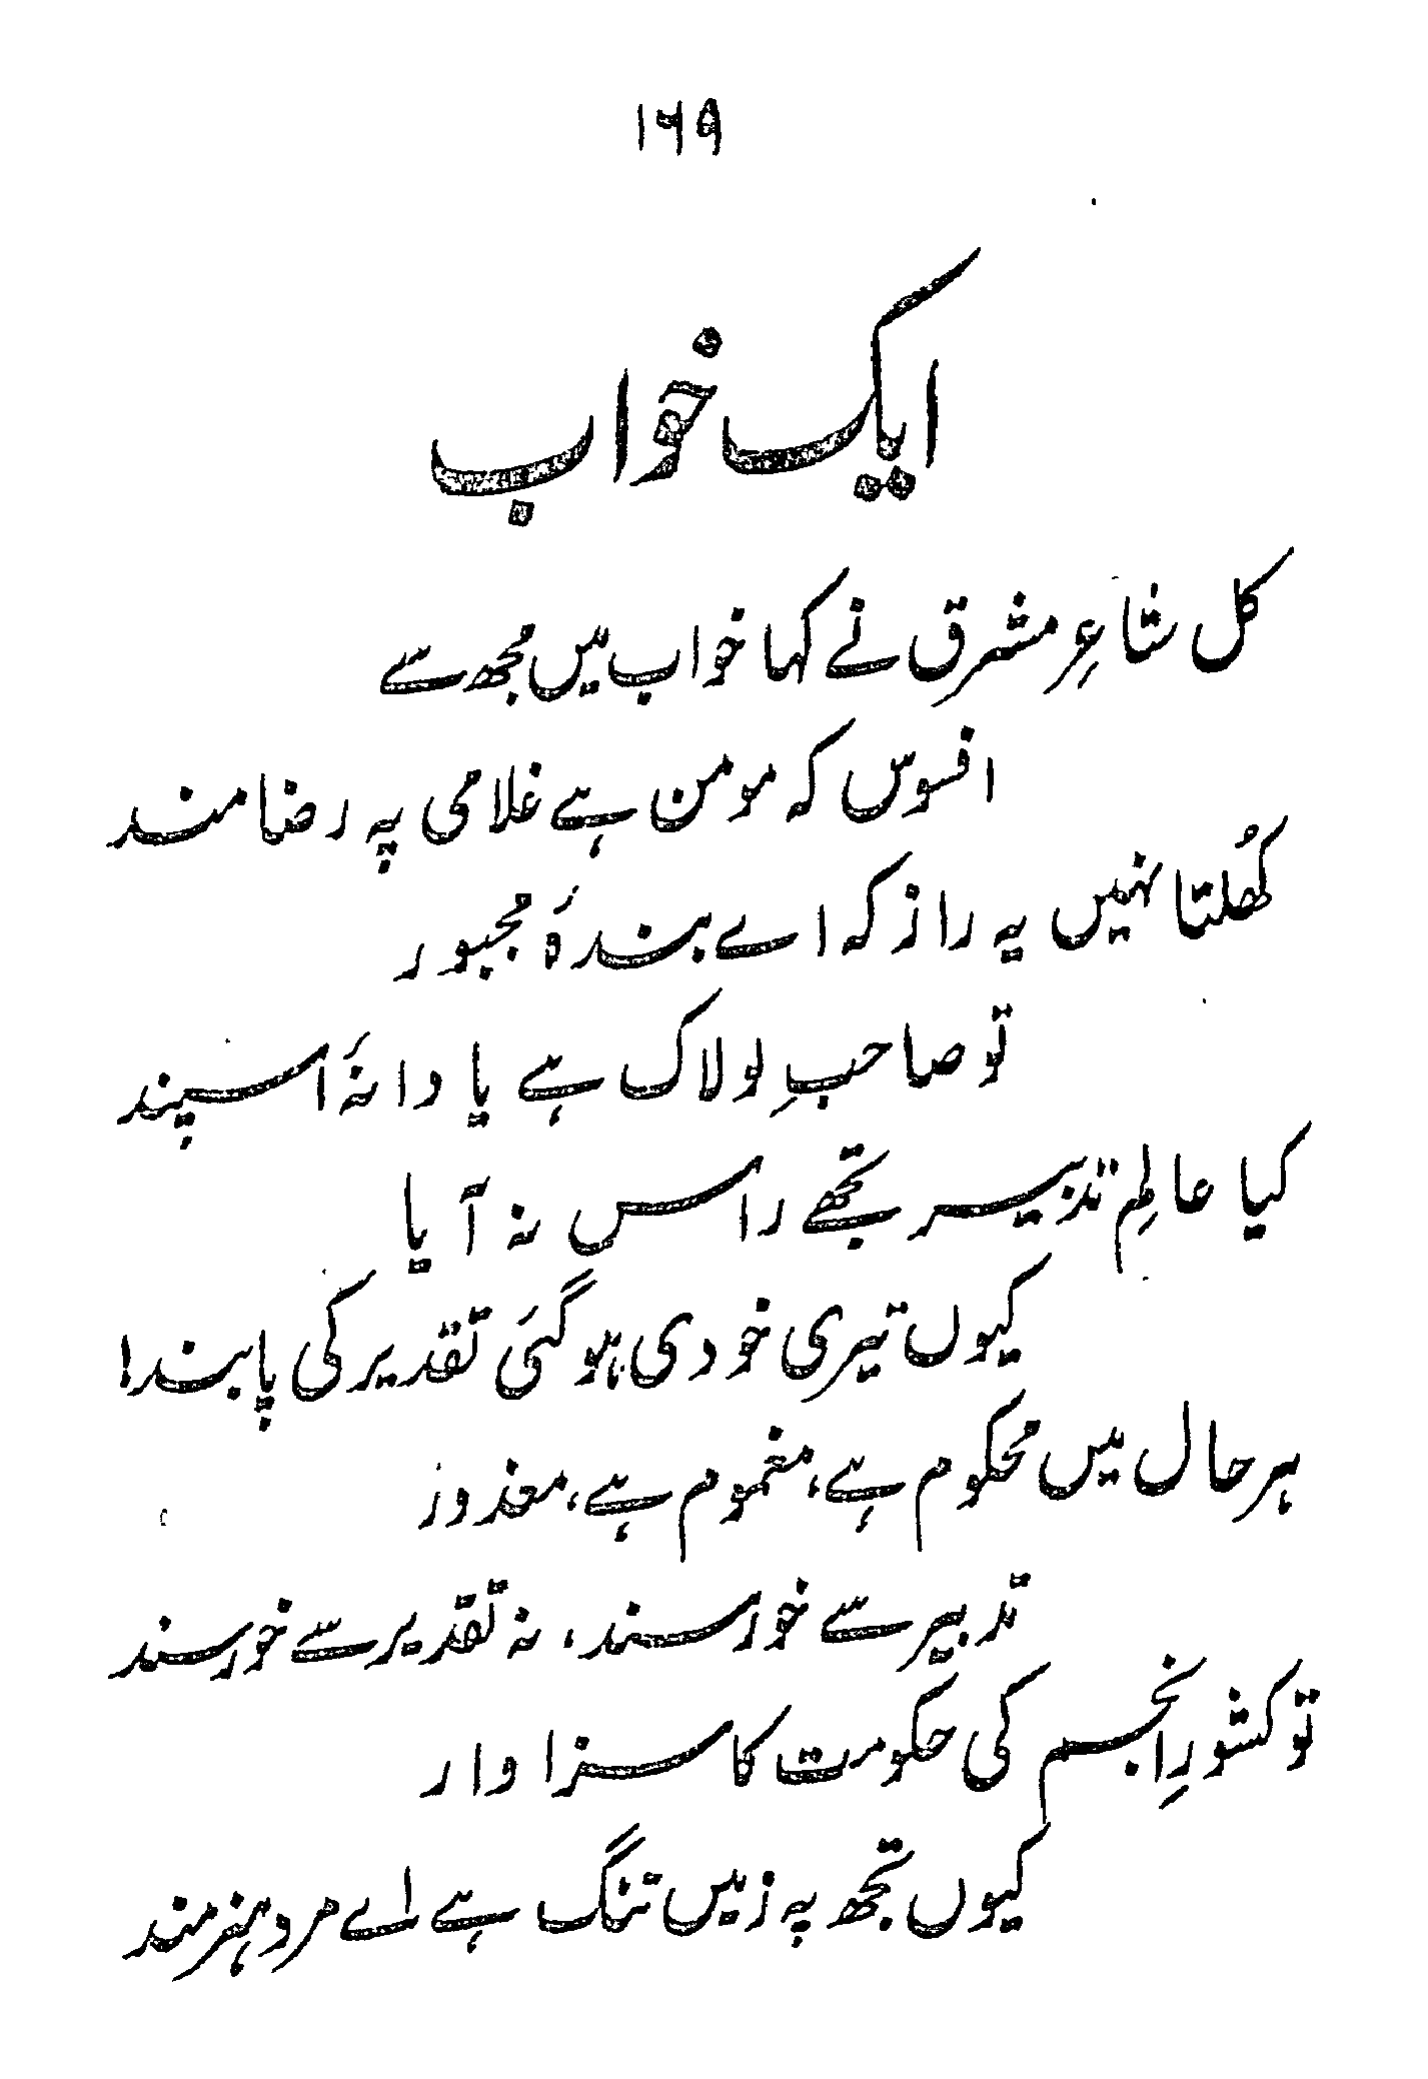 ۱۶۹
ایک خواب
کل شاعرِ مشرق نے کہا خواب میں مُجھ سے
افسوس کہ مومن ہے غلامی پہ رضامند
کھُلتا نہیں یہ راز کہ اے بندۂ مُجبور
تو صاحبِ لولاک ہے یا دانۂ اسپند
کیا عالمِ تدبیر تجھے راس نہ آیا
کیوں تیری خودی ہو گئی تقدیر کی پابند!
ہر حال میں مُحکوم ہے، مغموم ہے، معذور
تدبیر سے خورسند، نہ تقدیر سے خورسند
تو کشورِ انجم کی حکومت کا سزاوار
کیوں تجھ پہ زمیں تنگ ہے اے مرد ہنرمند